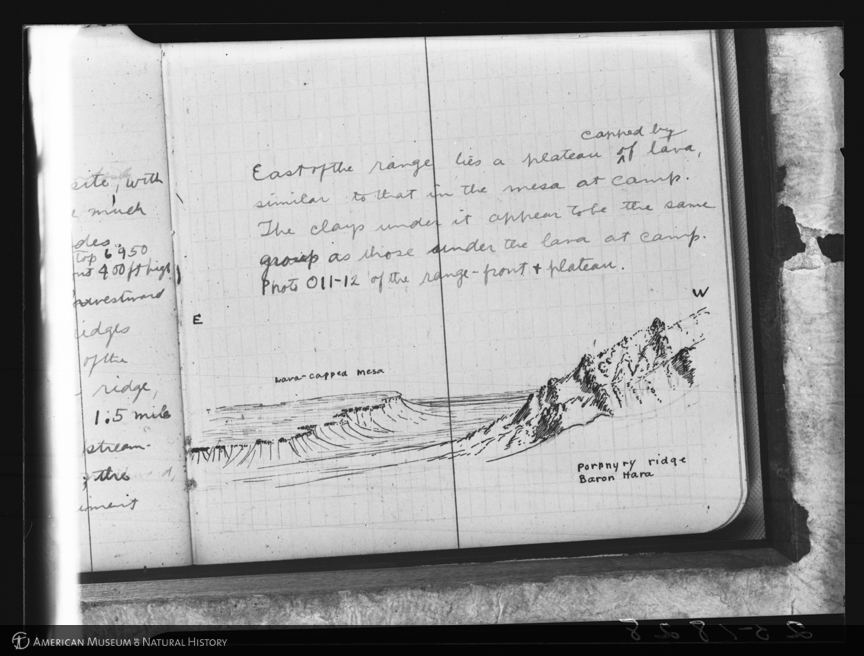 site, with
much
des.
top 6950
400 ft high
westward
idges
of the
ridge,
1.5 mile
stream-
the
capped by
East of the range lies a plateau of ^ lava,
similar to that in the mesa at camp.
The clays under it appear to be the same
group as those under the lava at camp.
Photo 011-12 of the range-front + plateau.
E
W
Lava-capped mesa
Porphyry ridge
Baron Hara
AMERICAN MUSEUM OF NATURAL HISTORY